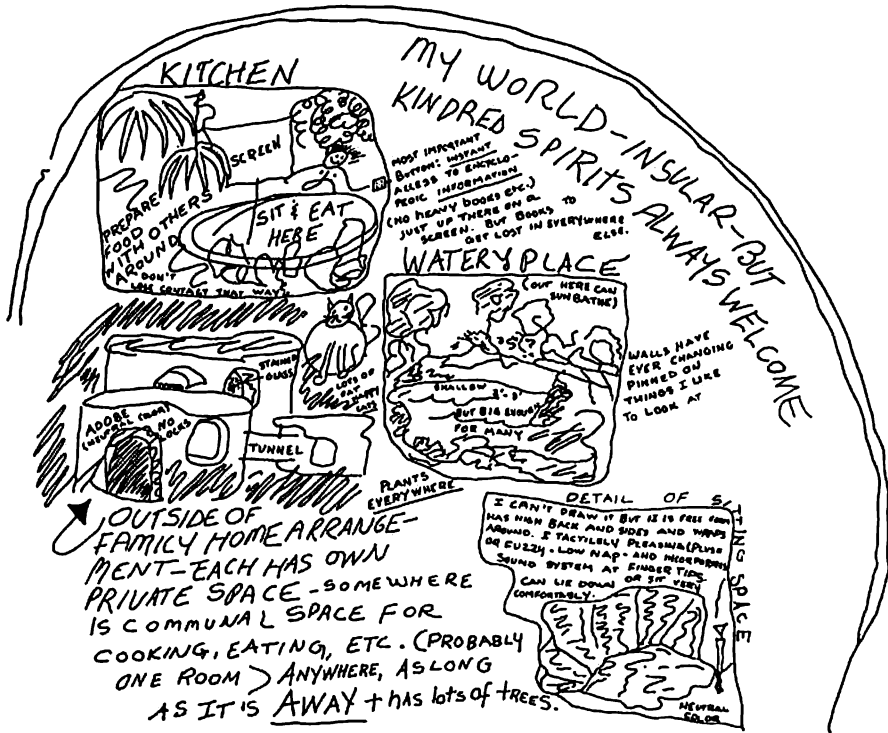 MY WORLD-INSULAR-BUT
KINDRED SPIRITS ALWAYS WELCOME
KITCHEN
SCREEN
PREPARE
FOOD
WITH OTHERS
AROUND
DON'T
LOSE CONTACT THAT WAY
SIT & EAT
HERE
MOST IMPORTANT
BUTTON: INSTANT
ACCESS TO ENCYCLO-
PEDIC INFORMATION
(NO HEAVY BOOKS ETC.)
JUST UP THERE ON A
SCREEN. BUT BOOKS TO
GET LOST IN EVERYWHERE
ELSE.
WATERY PLACE
(OUT HERE CAN
SUNBATHE)
SHALLOW
BUT BIG ENOUGH
FOR MANY
WALLS HAVE
EVER CHANGING
PINNED ON
THINGS I LIKE
TO LOOK AT
STAINED
GLASS
LOTS OF
FAT
HAPPY
CATS
ADOBE
NO
LOCKS
TUNNEL
PLANTS
EVERYWHERE
OUTSIDE OF
FAMILY HOME ARRANGE-
MENT-EACH HAS OWN
PRIVATE SPACE-SOMEWHERE
IS COMMUNAL SPACE FOR
COOKING, EATING, ETC. (PROBABLY
ONE ROOM) ANYWHERE, AS LONG
AS IT IS AWAY + HAS LOTS OF TREES.
DETAIL OF SITTING SPACE
I CAN'T DRAW IT BUT IT IS FREE FORM
HAS HIGH BACK AND SIDES AND WRAPS
AROUND. I TACTILELY PLEASING (PLUSH
OR FUZZY-LOW NAP-AND INCORPORATES
SOUND SYSTEM AT FINGER TIPS.
CAN LIE DOWN OR SIT VERY
COMFORTABLY.
NEUTRAL
COLOR